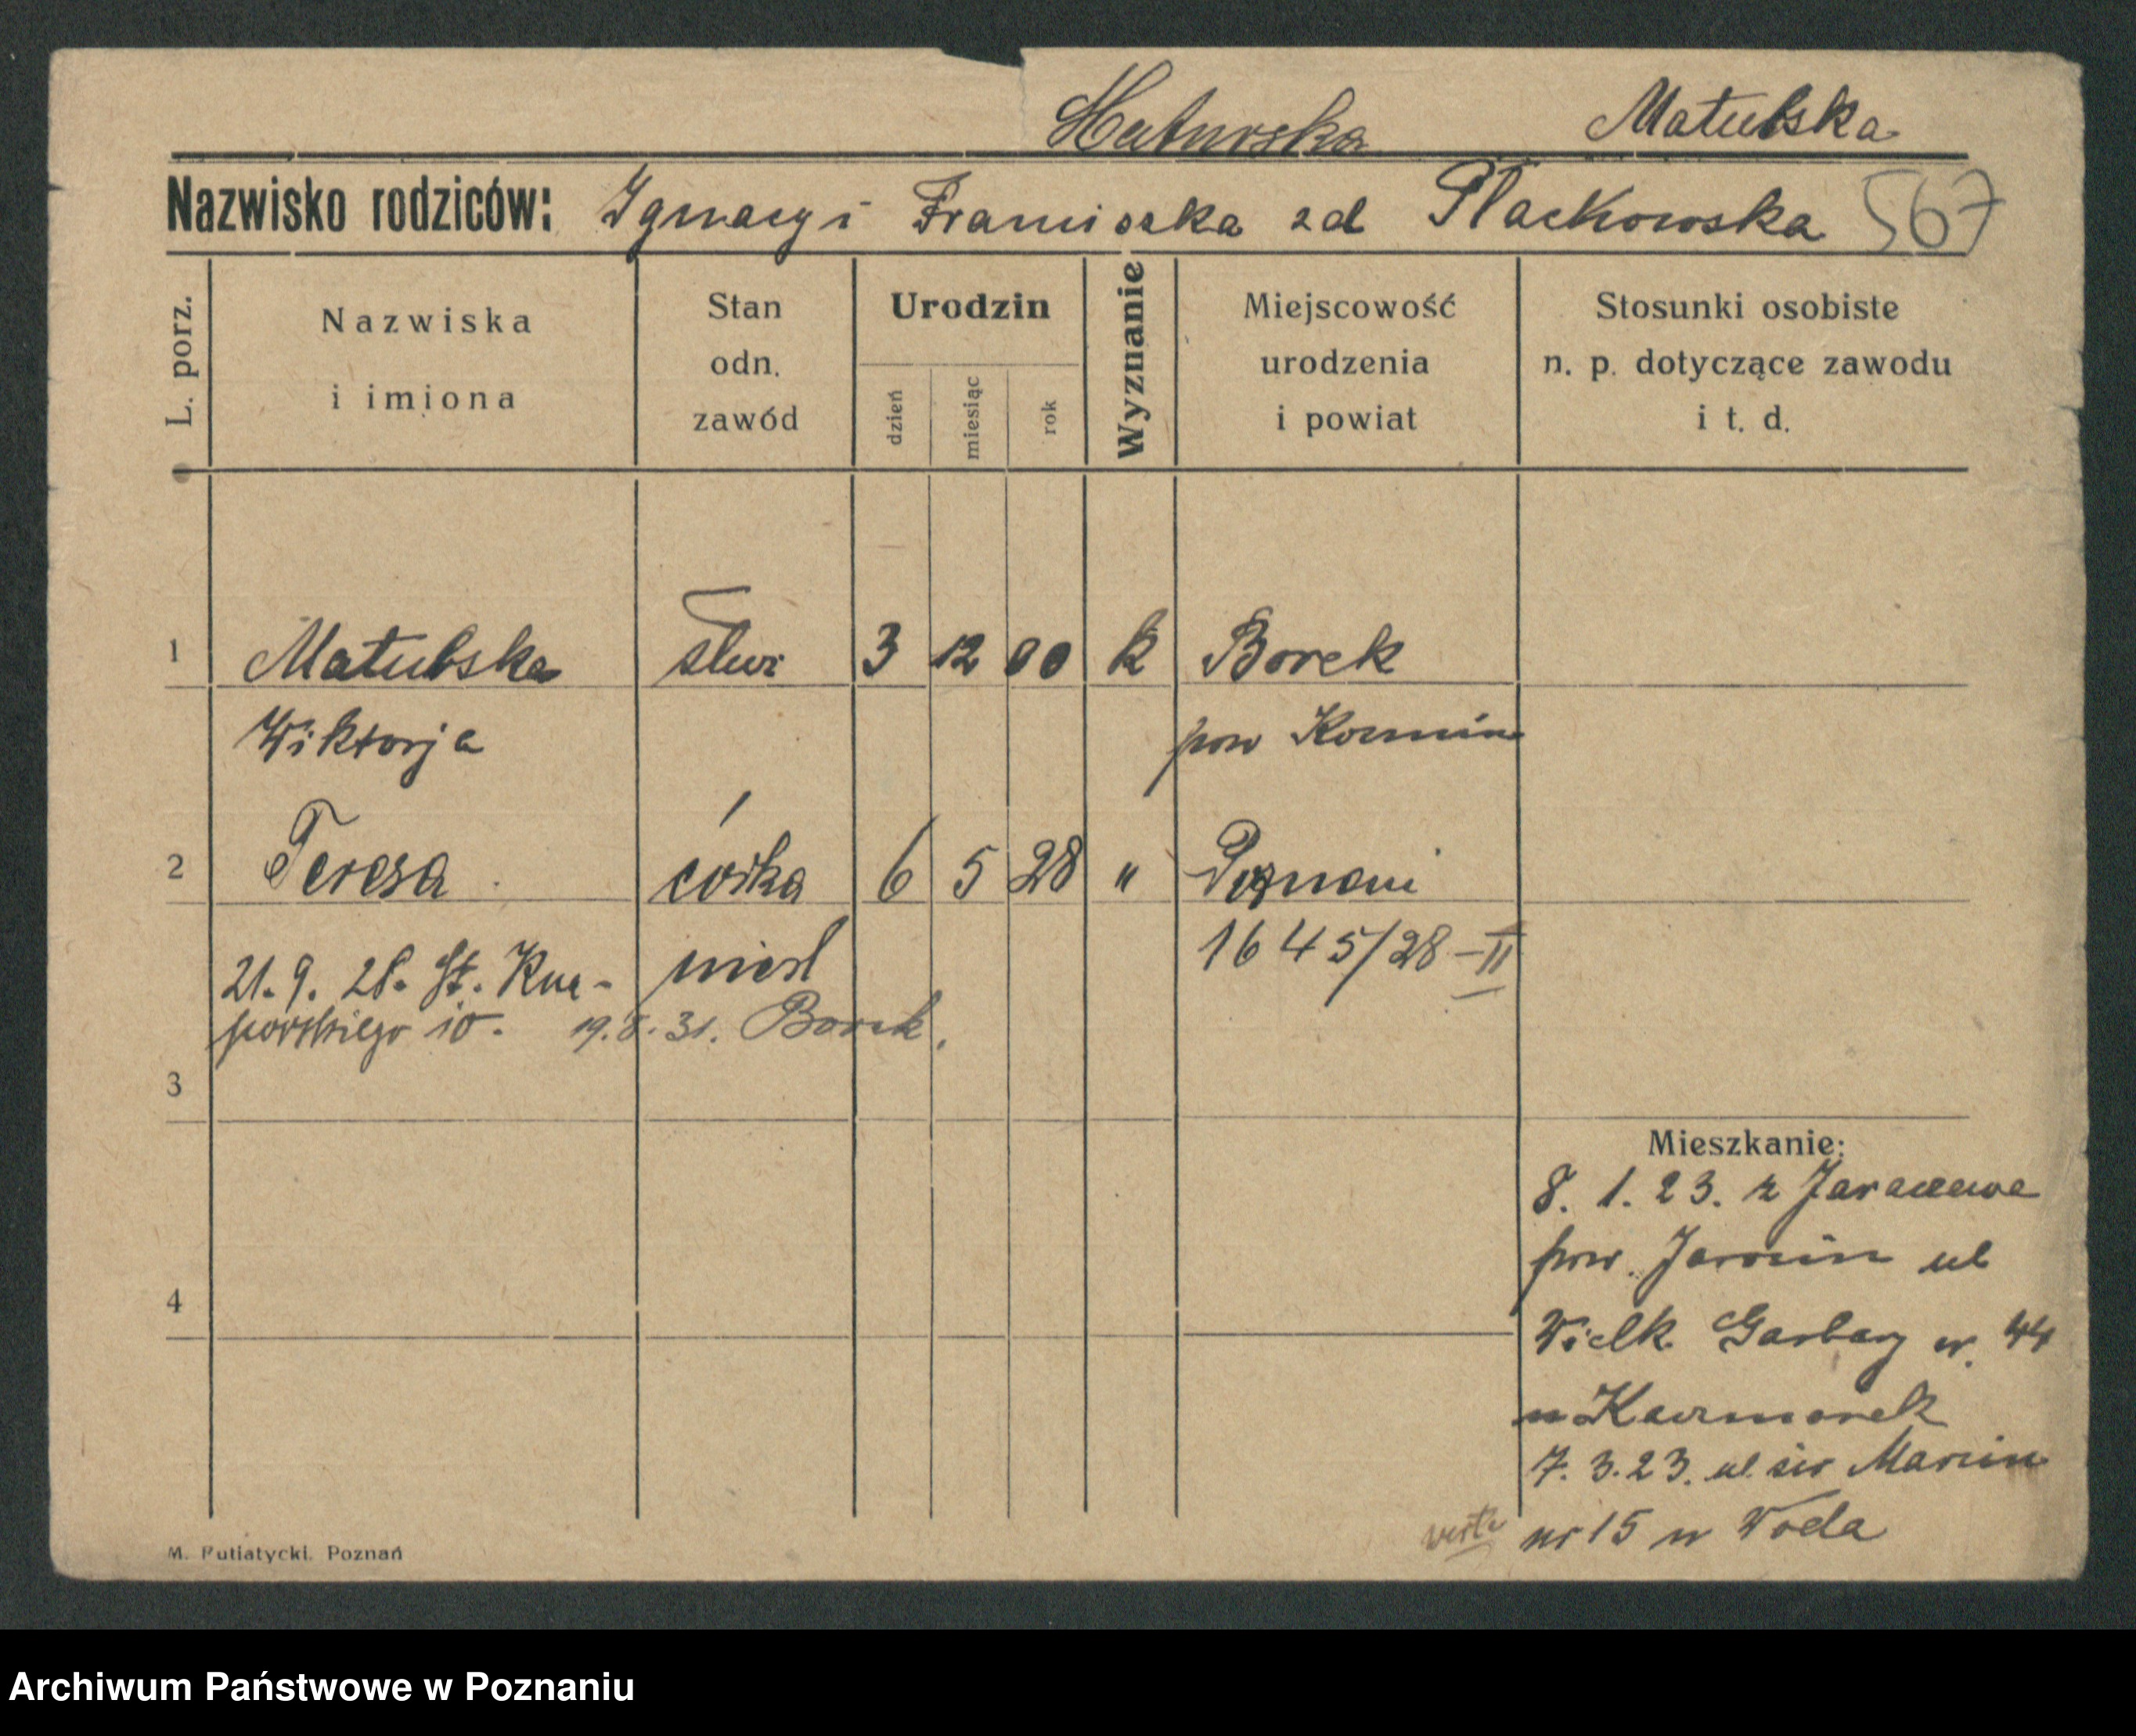 Matubska
Nazwisko rodziców: Ignacy i Franciszka zd Plackowska 567
L. porz.
Nazwiska
i imiona
Stan
odn.
zawód
Urodzin
dzień
miesiąc
rok
Wyznanie
Miejscowość
urodzenia
i powiat
Stosunki osobiste
n. p. dotyczące zawodu
i t. d.
1 Matubska 3 12 00 k Borek
Wiktorja pow Kozmin
2 Teresa córka 6 5 28 " Poznani
1645/28-II
21. 9. 28. St. Kna-
10. 19. 8. 31. Borek.
3
Mieszkanie:
8. 1. 23. z Jaraczewa
pow. Jarocin ul
4
Wielk. Garbary nr. 44
u Kaczmarek
7. 3. 23. ul. św Marcin
nr 15 u Woda
verte
M. Putiatycki. Poznań
Archiwum Państwowe w Poznaniu